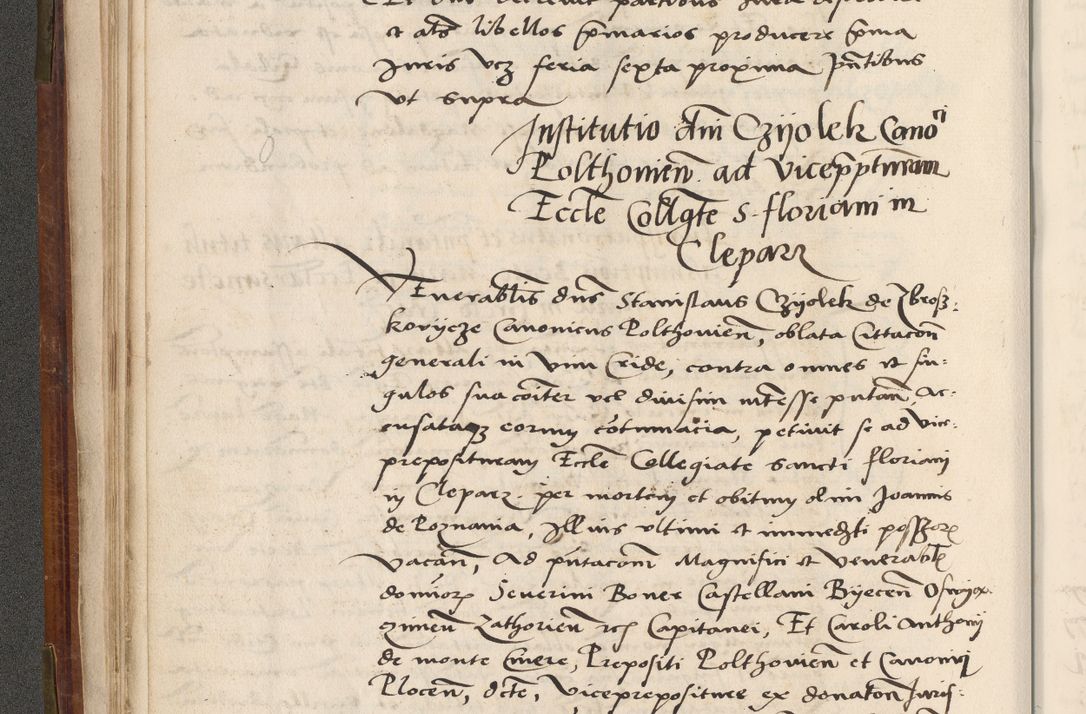 et al̃s libellos p̃marios producere p̃ma
Juris vcz feria sexta proxima p̃ntibus
vt supra
Institutio dñi Czÿolek Canoci
Polthouien̄. ad vicep̃pturam
Eccl̃e Collg̃te S. floriani in
Cleparz
Venerabl̃is dn̄s Stanislaus Czÿolek de Zbroß-
kovÿcze Canonicus Polthouien̄, oblata Cittacoñ
generali in vim Cride, contra omnes et sin-
gulos sua coiter vel divisim int̃esse putan̄, Ac-
cusataqz eorum cotumacia, petiuit se ad vice-
preposituram Eccl̃e Collegiate sancti floriani
in Cleparz per mortem et obitum olim Joannis
de Poznania, Illius vltimi et immedti possoris
vacan̄, Ad pñtacom̄ Magnifici et venerabl̃
dominor Seuerini Boner Castellani Bÿecen̄
zimen̄ Zathorien̄ Capitanei, Et Caroli Anthonÿ
de monte Cinere, Prepositi Polthouien̄ et Canonici
Plocen̄, dc̃te, vicepreposituree ex donaton̄ Juris-